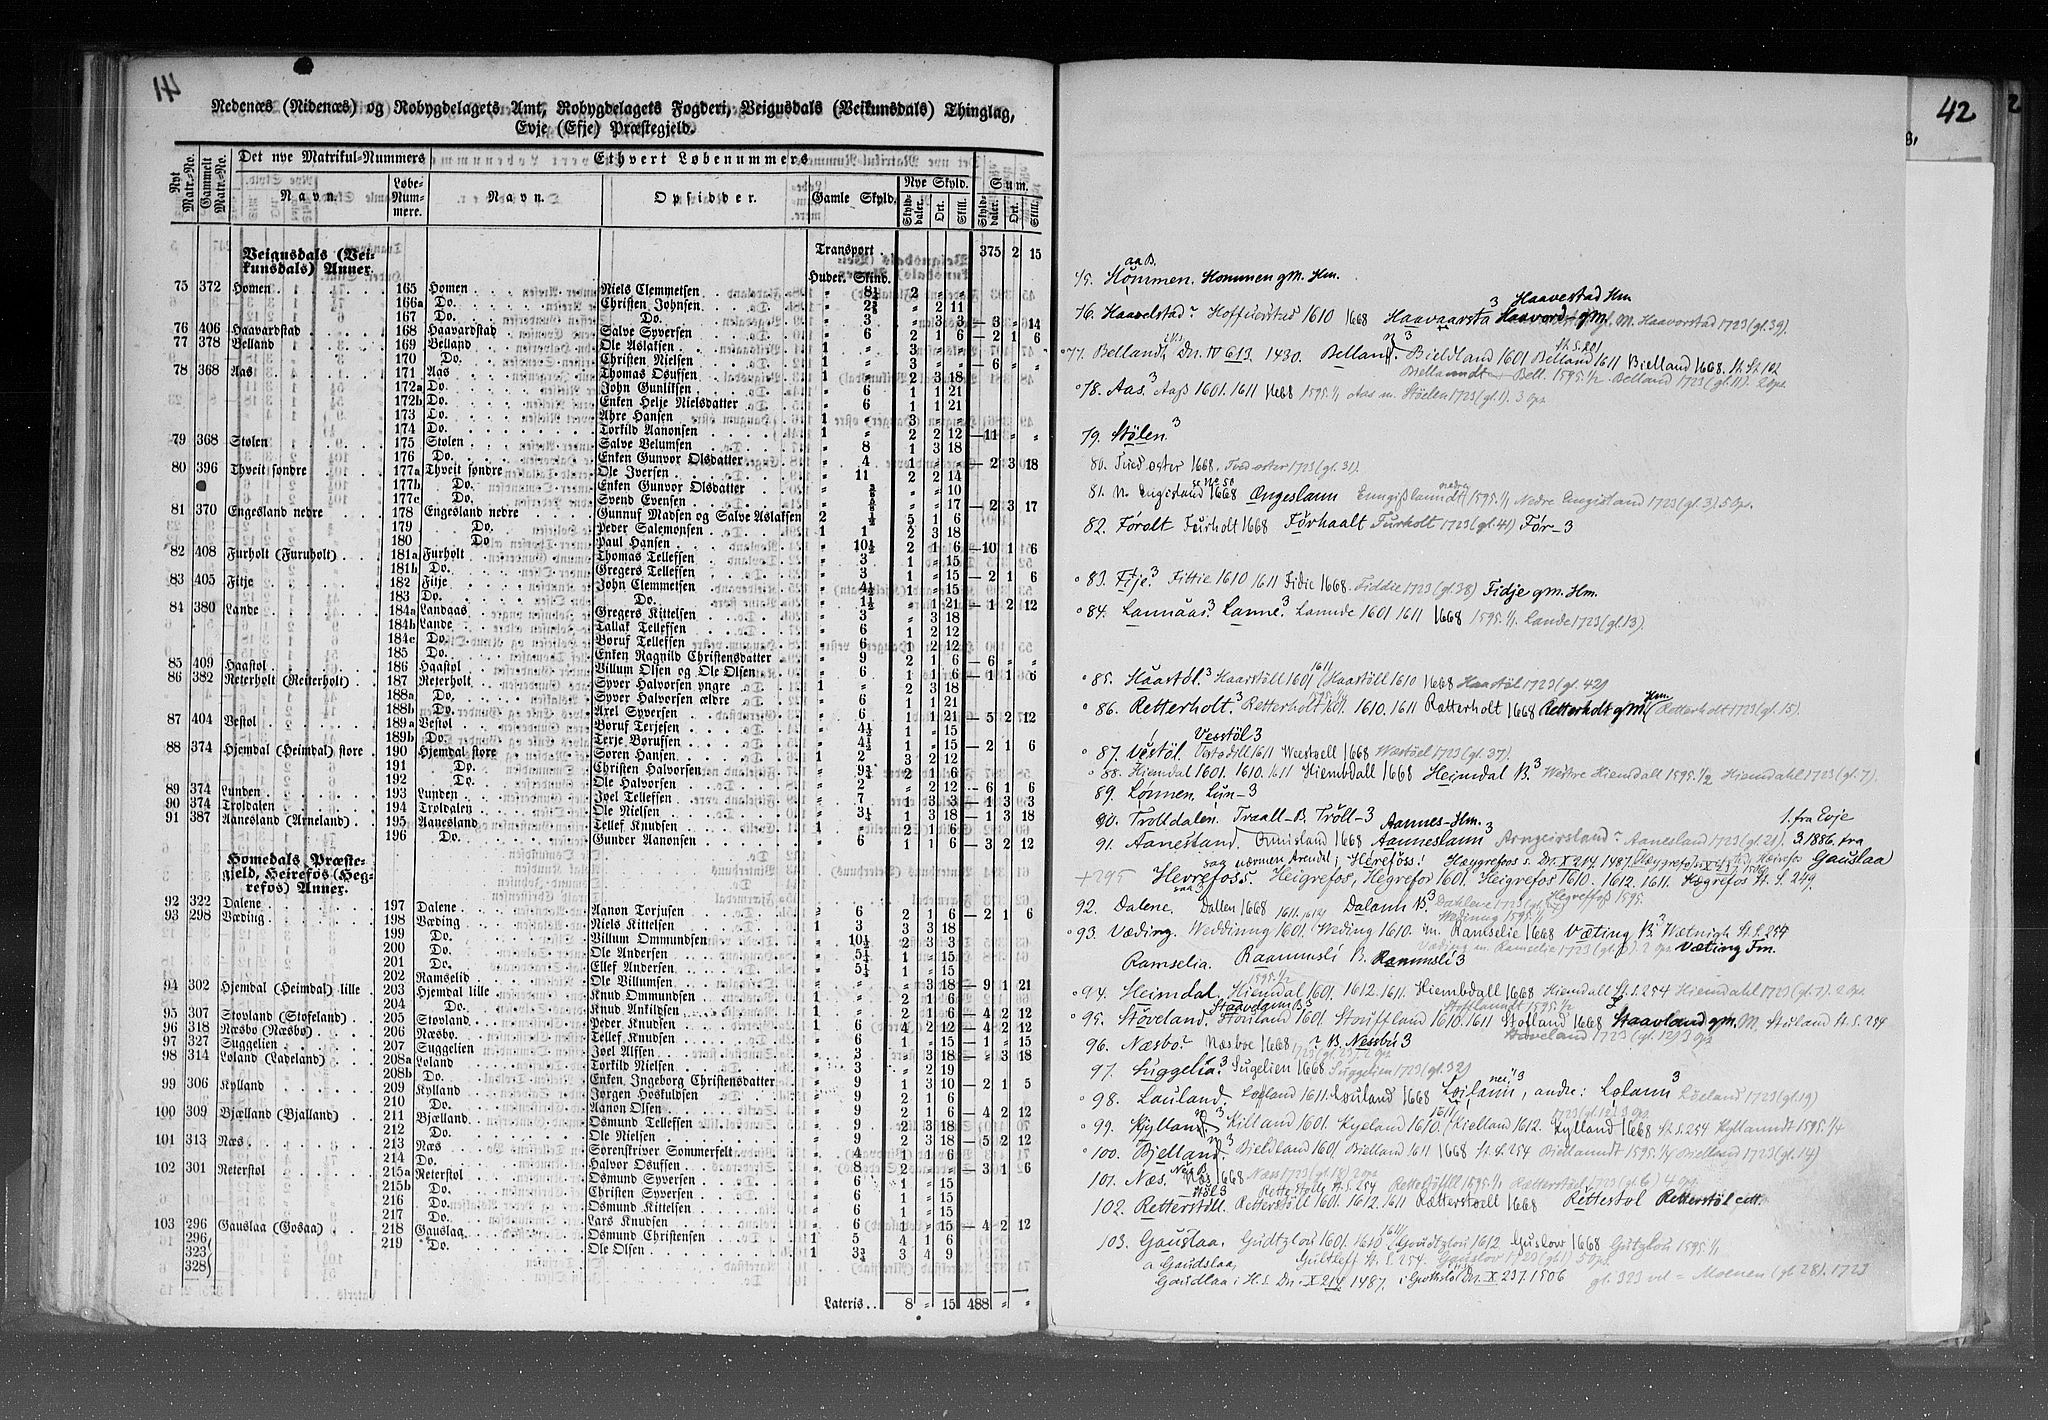 Nedenæs (Nidenæs) og Robygdelagets Amt, Robygdelagets Fogderi, Veigusdals (Veikunsdals) Thinglag,
Evje (Efje) Præstegjeld.
Nyt Matr.-No. Gammelt Matr.-No. Det nye Matrikul-Nummers Ethvert Løbenummers
Navn. Løbe-Num-mere. Navn. Opsidder. Gamle Skyld. Nye Skyld. Sum.
Skyld-daler. Ort. Skill. Skyld-daler. Ort. Skill.
Veigusdals (Vei-kunsdals) Annex. Transport 375 2 15
Huder. Skind.
75 372 Homen 165 Homen Niels Clemmetsen
166a Do. Christen Johnsen
167 Do. Do. 3 — 3 " 14
76 406 Haavardstad 168 Haavardstad Salve Syversen 6 2 1 6 — 2 1 6
77 378 Belland 169 Belland Ole Aslaksen 1 " 3 " "
170 Do. Christen Nielsen 1 " 3 " " — 6 " "
78 368 Aas 171 Aas Thomas Osufsen 1 " 2 3 18
172a Do. John Gunlifsen " 6 1 1 21
172b Do. Enken Helje Nielsdatter " 6 1 1 21
173 Do. Ahre Hansen 1 " 3 " "
174 Do. Torkild Aanonsen 1 " 2 2 12 — 11 " "
79 368 Stolen 175 Stolen Salve Velumsen " 8 1 3 18
176 Do. Enken Gunvor Olsdatter " 4 1 " " — 2 3 18
80 396 Thveit søndre 177a Thveit søndre Ole Iversen " 11 2 2 14
177b Do. Enken Gunvor Olsdatter " " 10
177c Do. Svend Evensen " " 17 — 2 3 17
81 370 Engesland nedre 178 Engesland nedre Gunnuf Madsen og Salve Aslaksen 2 5 1 6
179 Do. Peder Salemonsen 1 1 2 3 18
180 Do. Paul Hansen " 10½ 2 1 6 — 10 1 6
82 408 Furholt (Furuholt) 181a Furholt Thomas Tellefsen " 3 1 " 15
181b Do. Gregers Tellefsen " 3 1 " 15 — 2 1 6
83 405 Fitje 182 Fitje John Clemmetsen " 4½ 1 " 15
183 Do. Do. " 1½ " 1 21 — 1 2 12
84 380 Lande 184a Landaas Gregers Kittelsen " 3 " 3 18
184b Lande Tallak Tellefsen " 6 1 2 12
184c Do. Boruf Tellefsen " 6 1 2 12
185 Do. Enken Ragnild Christensdatter " 9 2 1 6 — 6 " "
85 409 Haastol 186 Haastol Villum Olsen og Ole Olsen " 6 1 1 6 — 1 1 6
86 382 Reterholt (Reiterholt) 187 Reterholt Syver Halvorsen yngre 1 " 2 3 18
188a Do. Syver Halvorsen ældre " 6 1 1 21
188b Do. Axel Syversen " 6 1 1 21 — 5 2 12
87 404 Vestol 189a Vestol Boruf Terjesen " 4½ 1 " 15
189b Do. Terje Borufsen " 4½ 1 " 15 — 2 1 6
88 374 Hjemdal (Heimdal) store 190 Hjemdal store Søren Hansen 1 2 3 2 12
191 Do. Christen Halvorsen 2 1 6
192 Do. Ole Halvorsen " 2 " 2 12 — 6 1 6
89 374 Lunden 193 Lunden Joel Tellefsen " 7 1 3 3 — 1 3 3
90 374 Troldalen 194 Troldalen Ole Nielsen 1 3 18 — 1 3 18
91 387 Aanesland (Arneland) 195 Aanesland Tellef Knudsen 1 " 2 1 6
196 Do. Gunder Aanonsen " 6 1 1 6 — 3 2 12
Homedals Præste-gjeld, Heirefos (Heg-refos) Annex.
92 322 Dalene 197 Dalene Aanon Torjusen 6 2 1 6 — 2 1 6
93 298 Væding 198 Væding Niels Kittelsen 1 3 3 3 18
199 Do. Villum Ommundsen " 10½ 2 3 3
200 Do. Ole Andersen 1 " 15
201 Do. Ellef Andersen 1 " 15
202 Ramselid Do. " 3 18 — 9 1 21
94 302 Hjemdal (Heimdal) lille 203 Hjemdal lille Knud Ommundsen 2 1 6
204 Do. Knud Ankildsen 2 1 6 — 4 2 12
95 307 Stovland (Stofeland) 205 Stovland Peder Knudsen 1 6 4 2 12 — 4 2 12
96 318 Næsbo (Næsbø) 206 Næsbo Tellef Knudsen " 6 1 " 15 — 1 " 15
97 327 Suggelien 207 Suggelien Joel Alfsen " 3 " 3 18 — " 3 18
98 314 Loland (Ladeland) 208a Loland Torkild Nielsen
208b Do. Enken Ingeborg Christensdatter
99 306 Kylland 209 Kylland Jørgen Hoskuldsen " 9 2 1 6
210 Do. Aanon Olsen " 9 2 1 6 — 4 2 12
100 309 Bjælland (Bjalland) 211 Bjælland Osmund Tellefsen " 9 2 3 18
212 Do. Ole Nielsen " 9 2 3 18 — 5 2 12
101 313 Næs 213 Næs Sorenskriver Sommerfelt " 4 1 1 6
214 Do. Halvor Osufsen " 8 2 " " — 3 1 6
102 301 Reterstol 215a Reterstol Osmund Syversen " 6 1 " 15
215b Do. Christen Syversen " 6 1 " 15
216 Do. Osmund Kittelsen " 6 1 " 15
217 Do. Lars Knudsen " 6 1 " 15 — 4 2 12
103 296 Gauslaa (Gosaa) 218 Gauslaa Osmund Christensen 1 5 4 1 6
296 219 Do. Ole Olsen 1 3¾ 3 4 9
323
328
Lateris 8 " 15 488 " "
42
aa B.
75. Hommen. Hommen gM. Hm.
Haavestad Hm
76. Haavelstad? Hoffuerstad 1610 1668 Haavaarsta 3 Haavord- gM. M. Haavorstad 1723 (gl. 39).
77. Belland, Dn. IV 613. 1430. Belland. Bieldland 1601 Belland 1611 Bielland 1668. St. S. 102
Biellanndt Bell. 1595. 1/2 Belland 1723 (gl. 11). 2 Op.
78. Aas. 3 Aass 1601. 1611 1668 1595. 1/1 Aas m. Stoelen 1723 (gl. 1). 3 Op.
79. Stölen. 3
80. Tued øster 1668. Tved oster 1723 (gl. 31).
81. N. Engisland 1668 Ængeslann Enngisslanndt 1595. 1/1 Nedre Engisland 1723 (gl. 3) 5 Op.
82. Föralt Furholt 1668 Förhaalt Furholt 1723 (gl. 41) För- 3
83. Fije. 3 Fittie 1610 1611 Fidie 1668. Fiddie 1723 (gl. 38) Fidje gM. Hm.
84. Lannaas. 3 Lanne. 3 Lannde 1601 1611 1668 1595. 1/1 Lande 1723 (gl. 13)
85. Haastøl. 3 Haarstöll 1601 Haastöll 1610 1668 Haastøl 1723 (gl. 42)
86. Retterholt. 3 Retterholt 1601. 1610. 1611 Rætterholt 1668 Retterholt gM. Hm Retterholt 1723 (gl. 15).
Vesstöl 3
87. Vestöl. 1611 Weestoell 1668 Wæstøel 1723 (gl. 37).
88. Hiemdal 1601. 1610. 1611 Hiembdall 1668 Heimdal B. 3 Westre Hiemdall 1595. 1/2 Hiemdahl 1723 (gl. 7).
89. Lönnen. Lun- 3
90. Trolldalen. Traall- B. Tröll- 3 Aannes- Hm. 1. fra Evje
91. Aanesland. Omisland 1668 Aanneslann 3 Arngeirsland? Aanesland 1723 (gl. 21). 3. 1886. fra
sag nærmen Arendal; Herefoss! Hæygrefoos s. Dn. X 214. 1487. Gauslaa
+295 Hevrefoss. Heigrefos, Hegrefos 1601. Heigrefos 1610. 1612. 1611. Hegrefos St. S. 249.
Hegreffoss 1595.
92. Dalene. Dallen 1668 Dalann B. 3
93. Væding. Weddinng 1601. Weding 1610. m. Ramselie 1668 Væting B. 3 Wætnigh St. S. 254
Ramselia. Raammsli B. Rammsli 3 Væting Fm.
94. Heimdal. Hiemdal 1601. 1612. 1611. Hiembdall 1668 Hiemdall St. S. 254 Hiemdahl 1723 (gl. 7). 2 Op.
95. Stöveland. Stouland 1601. Stouffland 1610. 1611 Stofland 1668 Staavland gM. M. Stuland St. S. 254
Støveland 1723 (gl. 12) 3 Op.
96. Næsbo? Næsboe 1668 ? B. Nessbu 3
97. Suggelia. 3 Sugelien 1668 Suggelien 1723 (gl. 32)
98. Lauland. Lofland 1611. Louland 1668 Loilann, andre: Lolann 3 Loeland 1723 (gl. 19)
99. Kylland. 3 Killand 1601. Kyeland 1610. Kielland 1612. Kylland 1668 St. S. 254 Kyllanndt 1595. 1/4
100. Bjelland. 3 Bieldland 1601 Bielland 1611 1668 St. S. 254 Biellanndt 1595. 1/4 Bielland 1723 (gl. 14)
101. Næs. Næs 1668 Næss 1723 (gl. 18) 2 Op.
102. Retterstöll. Retterstöll 1601. 1612. 1611 Rætterstoell 1668 Rettestol Retterstöl
103. Gauslaa. Gudtzlou 1601. 1610 Goudtzlou 1612. Guslow 1668 Gutzlou 1595. 1/1
a Gaudslaa, Gultleff St. S. 254. Gauslov 1723 (gl. 1) 5 Op.
Gaudlaa i H. S. Dn. X 214. 1487. i Gvthsloo Dn. X 237. 1506 gl. 323 vel = Moenen (gl. 28). 1723